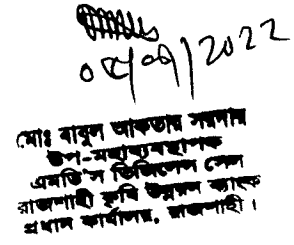 ০৫/০৭/২০২২
মোঃ বাবুল আকতার সরদার
উপ-মহাব্যবস্থাপক
এমডি'স ভিজিলেন্স সেল
রাজশাহী কৃষি উন্নয়ন ব্যাংক
প্রধান কার্যালয়, রাজশাহী।